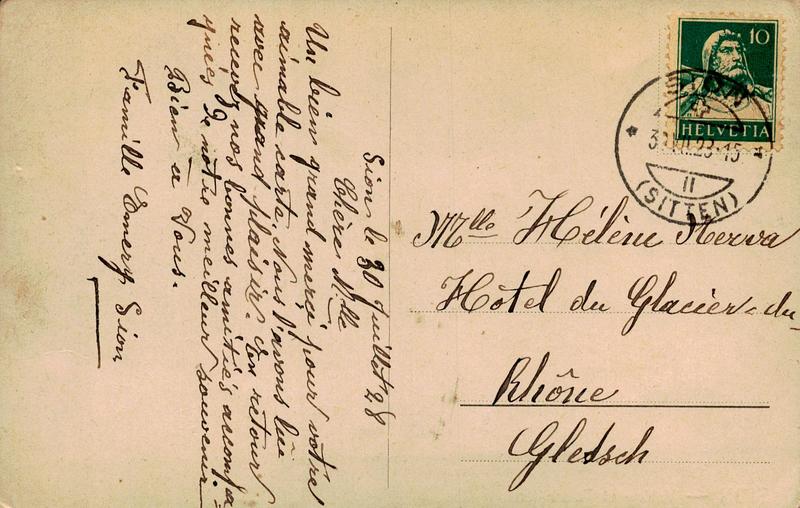 Sion le 30 Juillet 28
Chère Mlle
Un bien grand merci pour votre
aimable carte. Nous l'avons lue
avec grand plaisir. En retour
recevez nos bonnes amitiés accompa
gnées de notre meilleur souvenir
Bien à Vous.
Famille Emery Sion
10
HELVETIA
SION
(SITTEN)
II
Mlle Hélène Nerva
Hôtel du Glacier-du-
Rhône
Gletsch